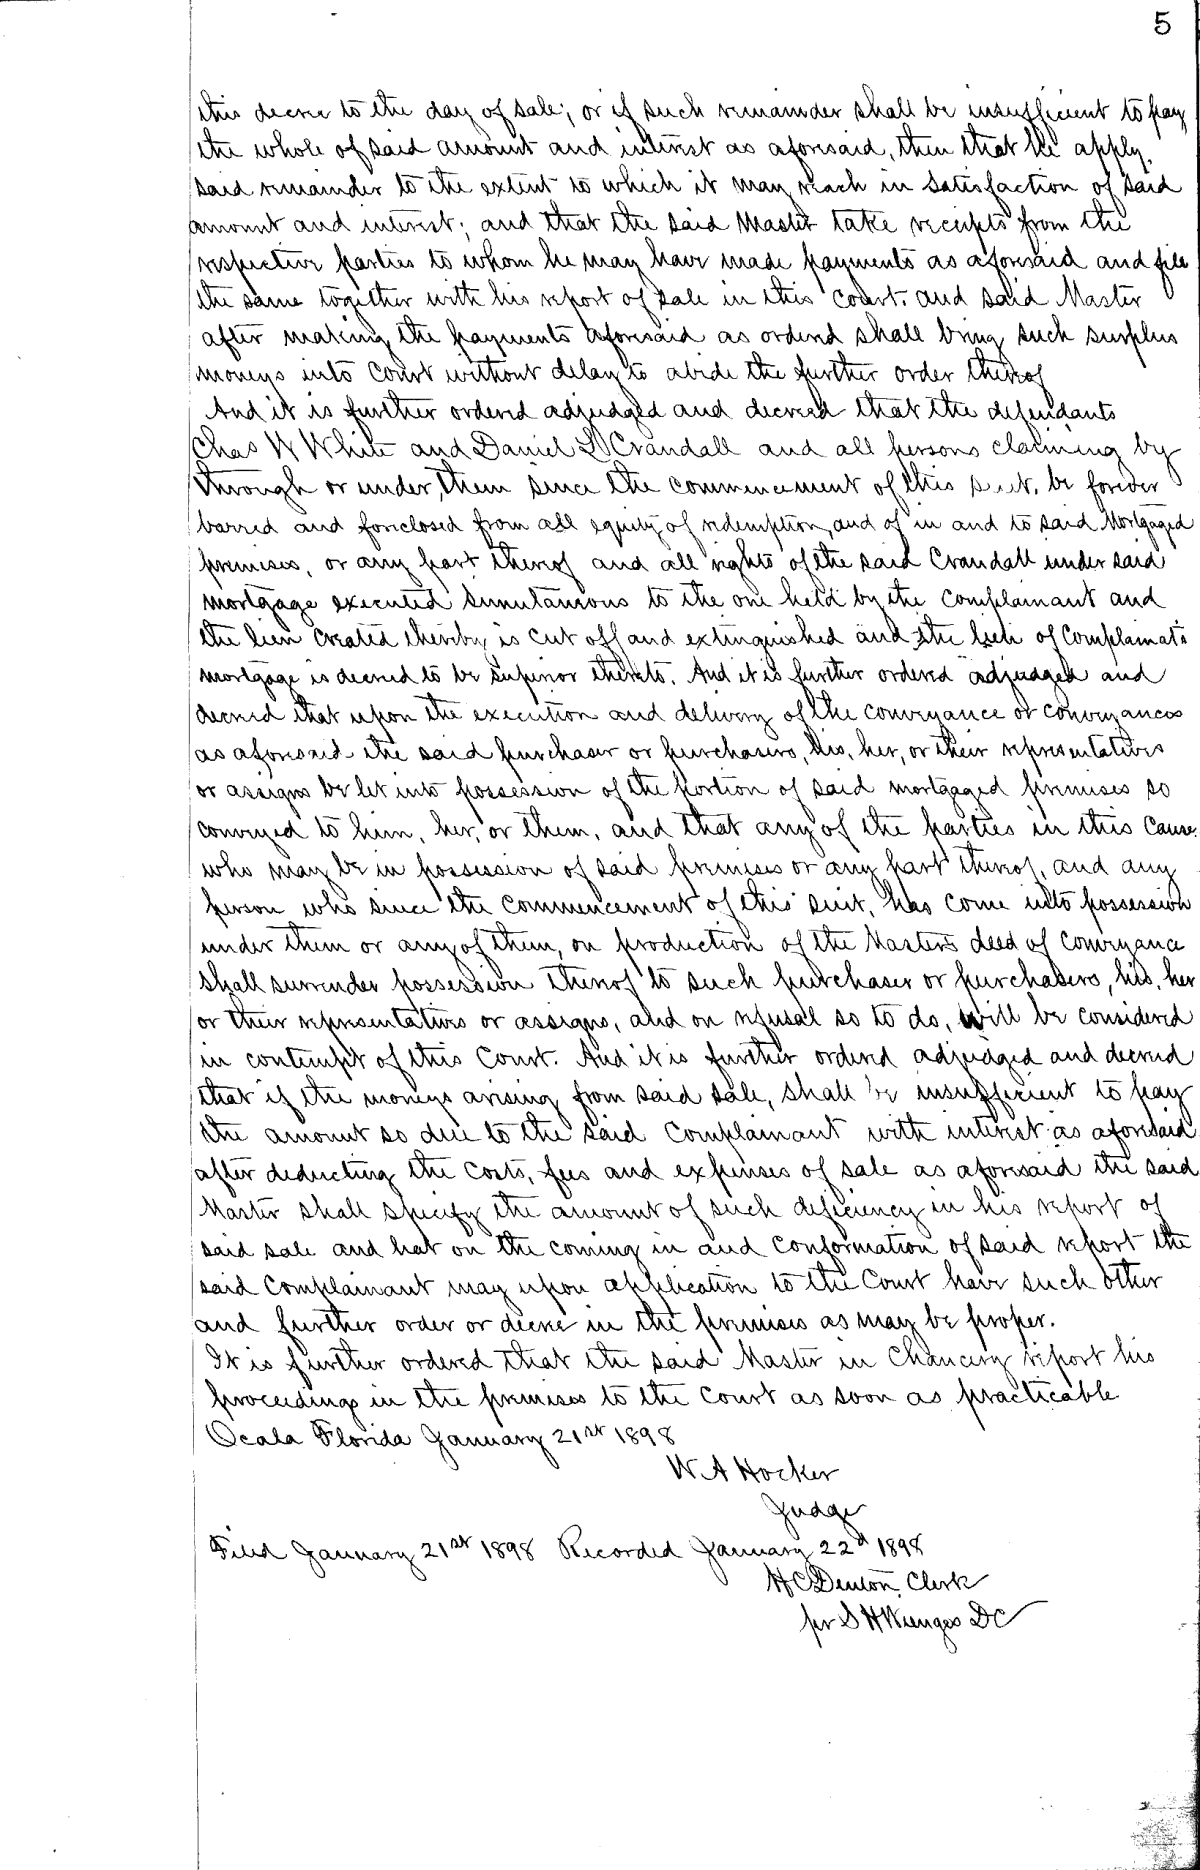 5
this decree to the day of sale; or if such remainder shall be insufficient to pay
the whole of said amount and interest as aforesaid, then that he apply
said remainder to the extent to which it may reach in satisfaction of said
amount and interest; and that the said Master take receipts from the
respective parties to whom he may have made payments as aforesaid and file
the same together with his report of sale in this court. and said Master
after making the payments aforesaid as ordered shall bring such surplus
moneys into Court without delay to abide the further order thereof
And it is further ordered adjudged and decreed that the defendants
Chas W White and Daniel L Crandall and all persons claiming by
through or under, them since the commencement of this suit, be forever
barred and foreclosed from all equity of redemption, and of in and to said Mortgaged
premises, or any part thereof and all rights of the said Crandall under said
mortgage executed simultanious to the one held by the complainant and
the lien created thereby is cut off and extinguished and the lien of Complainat's
mortgage is decreed to be superior thereto. And it is further ordered adjudged and
decreed that upon the execution and delivery of the conveyance or conveyances
as aforesaid the said purchaser or purchasers, his, her, or their representatives
or assigns be let into possession of the portion of said mortgaged premises so
conveyed to him, her, or them, and that any of the parties in this cause
who may be in possession of said premises or any part thereof, and any
person who since the commencement of this suit, has come into possession
under them or any of them, on production of the Masters deed of conveyance
shall surrender possession thereof to such purchaser or purchasers, his, her
or their representatives or assigns, and on refusal so to do, will be considered
in contempt of this Court. And it is further ordered adjudged and decreed
that if the moneys arising from said sale, shall be insufficient to pay
the amount so due to the said Complainant with interest as aforesaid
after deducting the costs, fees and expenses of sale as aforesaid the said
Master shall specify the amount of such deficiency in his report of
said sale and hat on the coming in and conformation of said report the
said Complainant may upon application to the Court have such other
and further order or decree in the premises as may be proper.
It is further ordered that the said Master in Chancery report his
proceedings in the premises to the Court as soon as practicable
Ocala Florida January 21st 1898
W A Hocker
Judge
Filed January 21st 1898 Recorded January 22d 1898
H C Denton Clerk
per S H DC